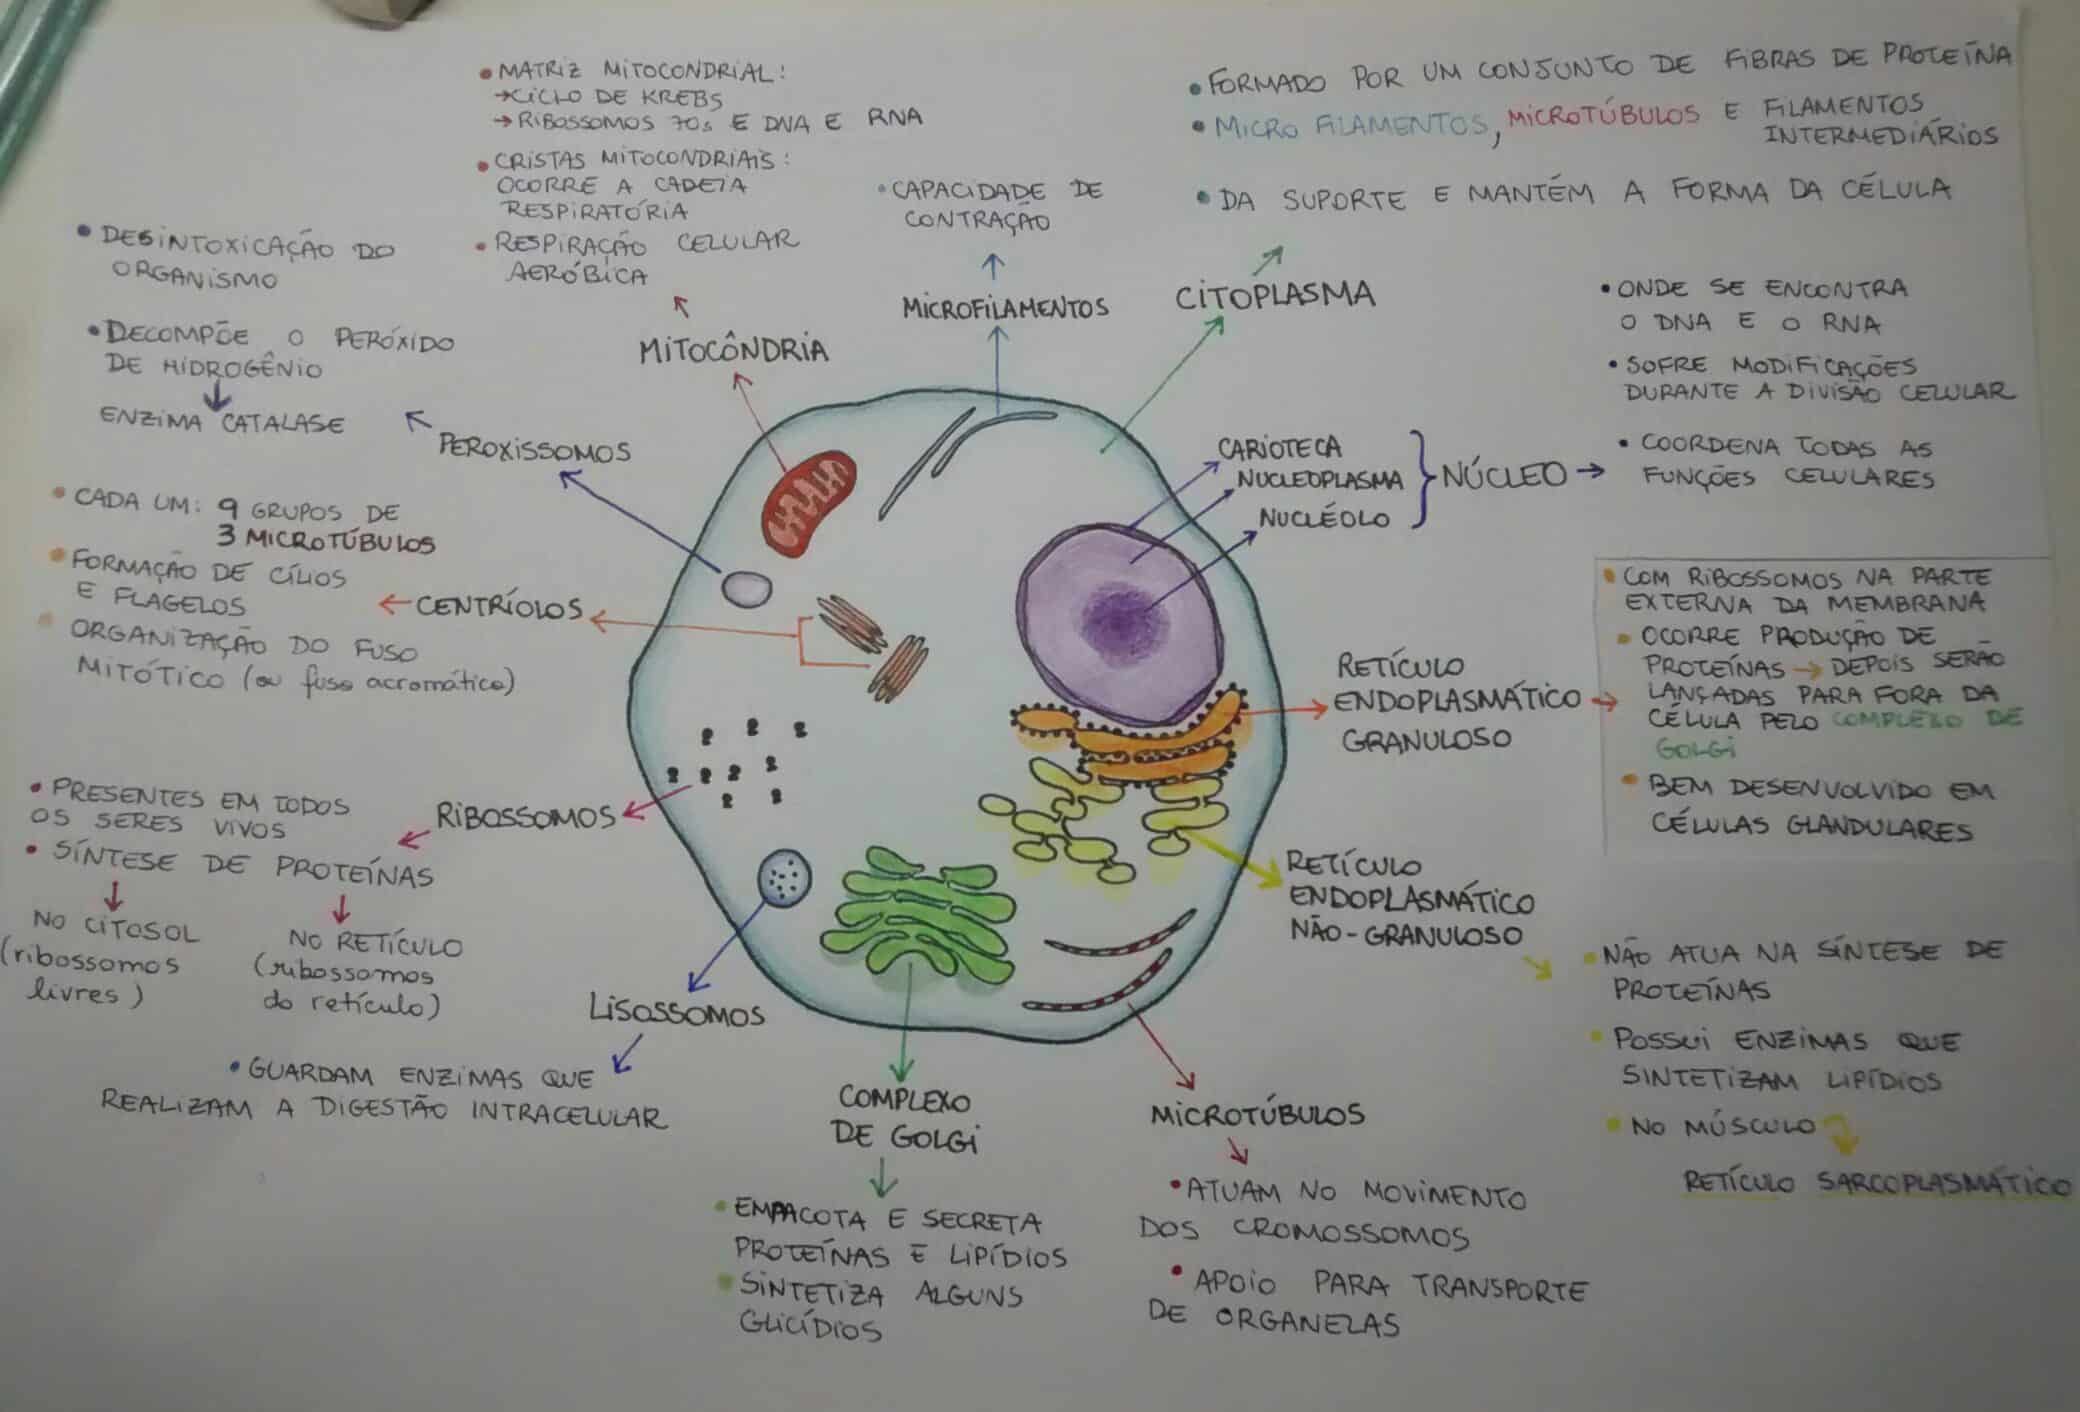 • MATRIZ MITOCONDRIAL:
→ CICLO DE KREBS
→ RIBOSSOMOS 70s E DNA E RNA
• CRISTAS MITOCONDRIAIS:
OCORRE A CADEIA
RESPIRATÓRIA
• RESPIRAÇÃO CELULAR
AERÓBICA
MITOCÔNDRIA
• CAPACIDADE DE
CONTRAÇÃO
MICROFILAMENTOS
• FORMADO POR UM CONJUNTO DE FIBRAS DE PROTEÍNA
• MICRO FILAMENTOS, MICROTÚBULOS E FILAMENTOS
INTERMEDIÁRIOS
• DA SUPORTE E MANTÉM A FORMA DA CÉLULA
CITOPLASMA
• ONDE SE ENCONTRA
O DNA E O RNA
• SOFRE MODIFICAÇÕES
DURANTE A DIVISÃO CELULAR
• COORDENA TODAS AS
FUNÇÕES CELULARES
CARIOTECA
NUCLEOPLASMA
NUCLÉOLO
NÚCLEO →
• DESINTOXICAÇÃO DO
ORGANISMO
• DECOMPÕE O PERÓXIDO
DE HIDROGÊNIO
ENZIMA CATALASE
PEROXISSOMOS
• CADA UM: 9 GRUPOS DE
3 MICROTÚBULOS
• FORMAÇÃO DE CÍLIOS
E FLAGELOS
• ORGANIZAÇÃO DO FUSO
MITÓTICO (ou fuso acromático)
← CENTRÍOLOS
RETÍCULO
ENDOPLASMÁTICO →
GRANULOSO
• COM RIBOSSOMOS NA PARTE
EXTERNA DA MEMBRANA
• OCORRE PRODUÇÃO DE
PROTEÍNAS → DEPOIS SERÃO
LANÇADAS PARA FORA DA
CÉLULA PELO COMPLEXO DE
GOLGI
• BEM DESENVOLVIDO EM
CÉLULAS GLANDULARES
• PRESENTES EM TODOS
OS SERES VIVOS
• SÍNTESE DE PROTEÍNAS
NO CITOSOL
(ribossomos
livres)
NO RETÍCULO
(ribossomos
do retículo)
RIBOSSOMOS
RETÍCULO
ENDOPLASMÁTICO
NÃO-GRANULOSO
• NÃO ATUA NA SÍNTESE DE
PROTEÍNAS
• POSSUI ENZIMAS QUE
SINTETIZAM LIPÍDIOS
• NO MÚSCULO
RETÍCULO SARCOPLASMÁTICO
LISOSSOMOS
• GUARDAM ENZIMAS QUE
REALIZAM A DIGESTÃO INTRACELULAR
COMPLEXO
DE GOLGI
• EMPACOTA E SECRETA
PROTEÍNAS E LIPÍDIOS
• SINTETIZA ALGUNS
GLICÍDIOS
MICROTÚBULOS
• ATUAM NO MOVIMENTO
DOS CROMOSSOMOS
• APOIO PARA TRANSPORTE
DE ORGANELAS